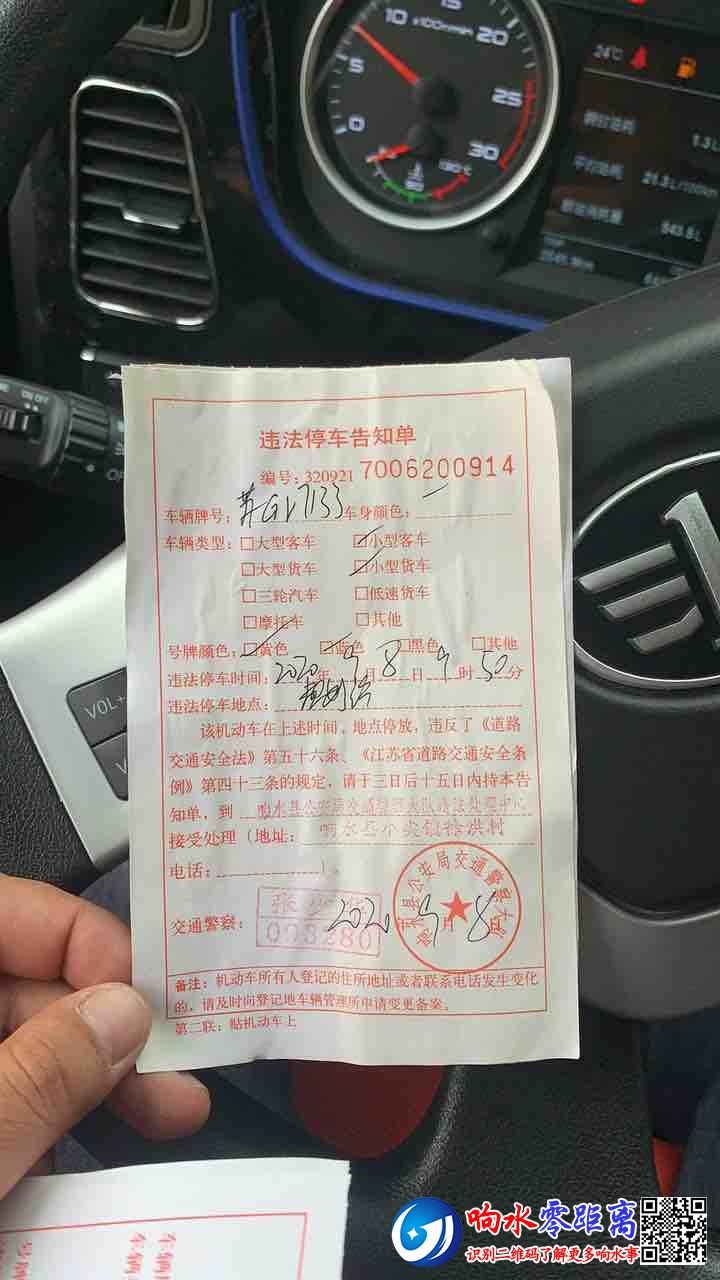 10
15
20
x100r/min
5
25
0
30
130℃
24℃
1.3L
平均油耗
21.3L/100km
543.5L
ON OFF
OFF
VOL+
违法停车告知单
编号: 320921 7006200914
车辆牌号: 苏G17133 车身颜色:
车辆类型: □大型客车 □小型客车
□大型货车 □小型货车
□三轮汽车 □低速货车
□摩托车 □其他
号牌颜色: □黄色 □蓝色 □黑色 □其他
违法停车时间: 2020年9月8日9时50分
违法停车地点:
该机动车在上述时间、地点停放，违反了《道路
交通安全法》第五十六条、《江苏省道路交通安全条
例》第四十三条的规定，请于三日后十五日内持本告
知单，到 响水县公安局交通警察大队违法处理中心
接受处理（地址: 响水县小尖镇 洪村
电话: ）。
交通警察: 张 2020 9月8日
093280
响水县公安局交通警察大队
备注: 机动车所有人登记的住所地址或者联系电话发生变化
的，请及时向登记地车辆管理所申请变更备案。
第二联: 贴机动车上
响水零距离
识别二维码了解更多响水事